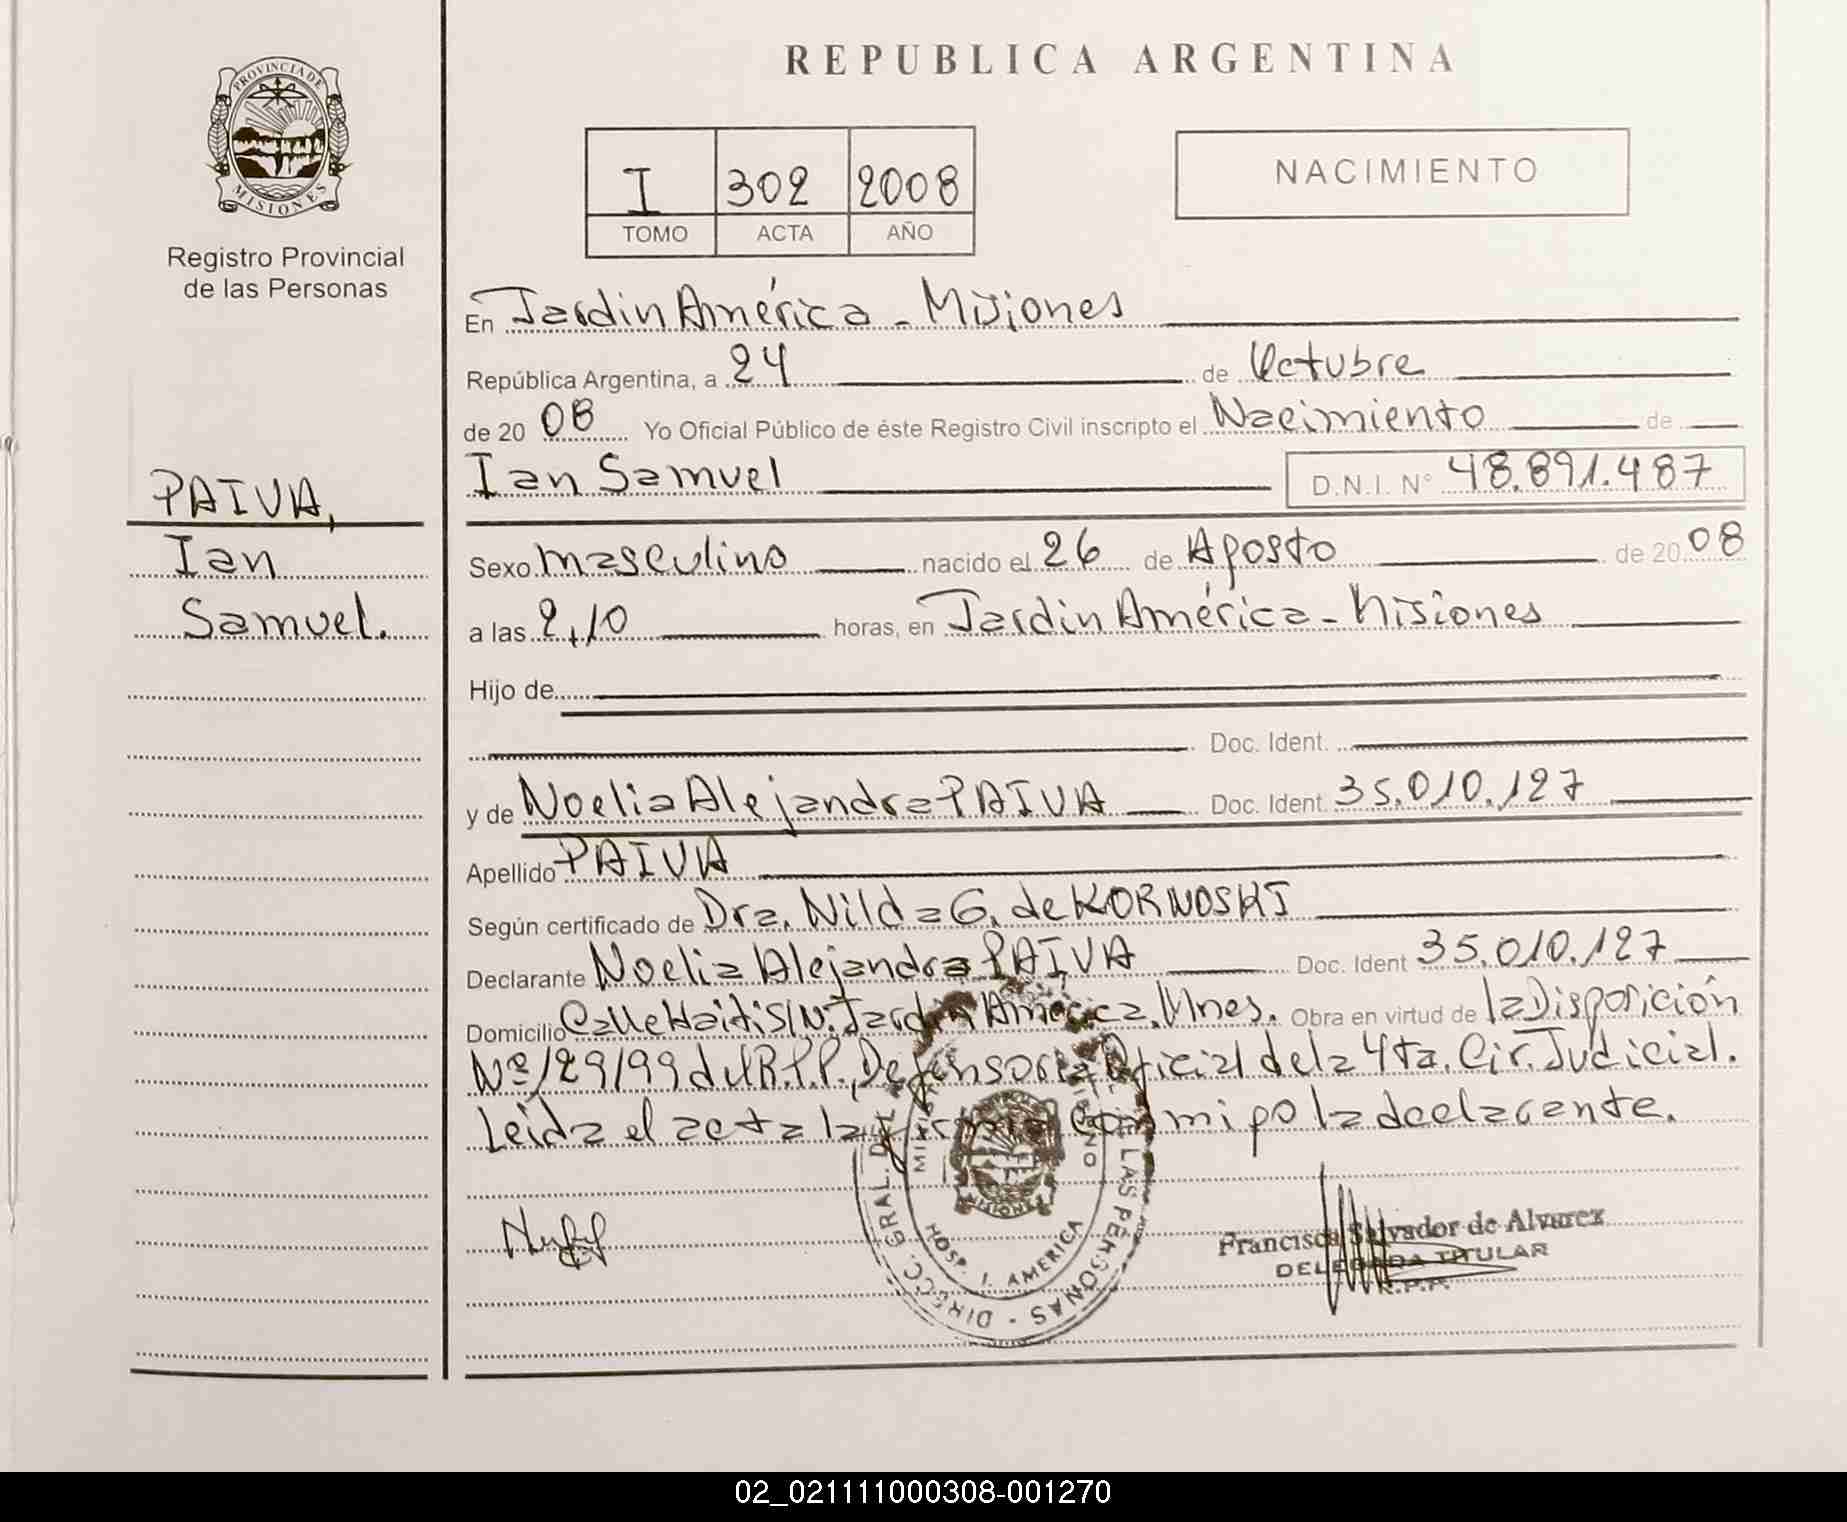 REPUBLICA ARGENTINA
PROVINCIA DE
MISIONES
Registro Provincial
de las Personas
I 302 2008
TOMO ACTA AÑO
NACIMIENTO
En Jardin América - Misiones
República Argentina, a 24 de Octubre
de 20 08 Yo Oficial Público de éste Registro Civil inscripto el Nacimiento de
Ian Samuel D.N.I. N° 48.891.487
PAIVA,
Ian
Samuel.
Sexo masculino nacido el 26 de Agosto de 20 08
a las 2,10 horas, en Jardin América - Misiones
Hijo de
Doc. Ident.
y de Noelia Alejandra PAIVA Doc. Ident. 35.010.127
Apellido PAIVA
Según certificado de Dra. Nilda G. de KORNOSKI
Declarante Noelia Alejandra PAIVA Doc. Ident 35.010.127
Domicilio Calle Haiti S/N. Jardin América, Mnes. Obra en virtud de la Disposición
Nº 129/99 del R.P.P., Defensoria Oficial de la 4ta. Cir. Judicial.
Leida el acta la firma con mi po la declarante.
DIRECC. GRAL. DEL LAS PERSONAS
HOSP. J. AMERICA
MISIONES
Francisca Salvador de Alvarez
DELEGADA TITULAR
R.P.P.
02_021111000308-001270